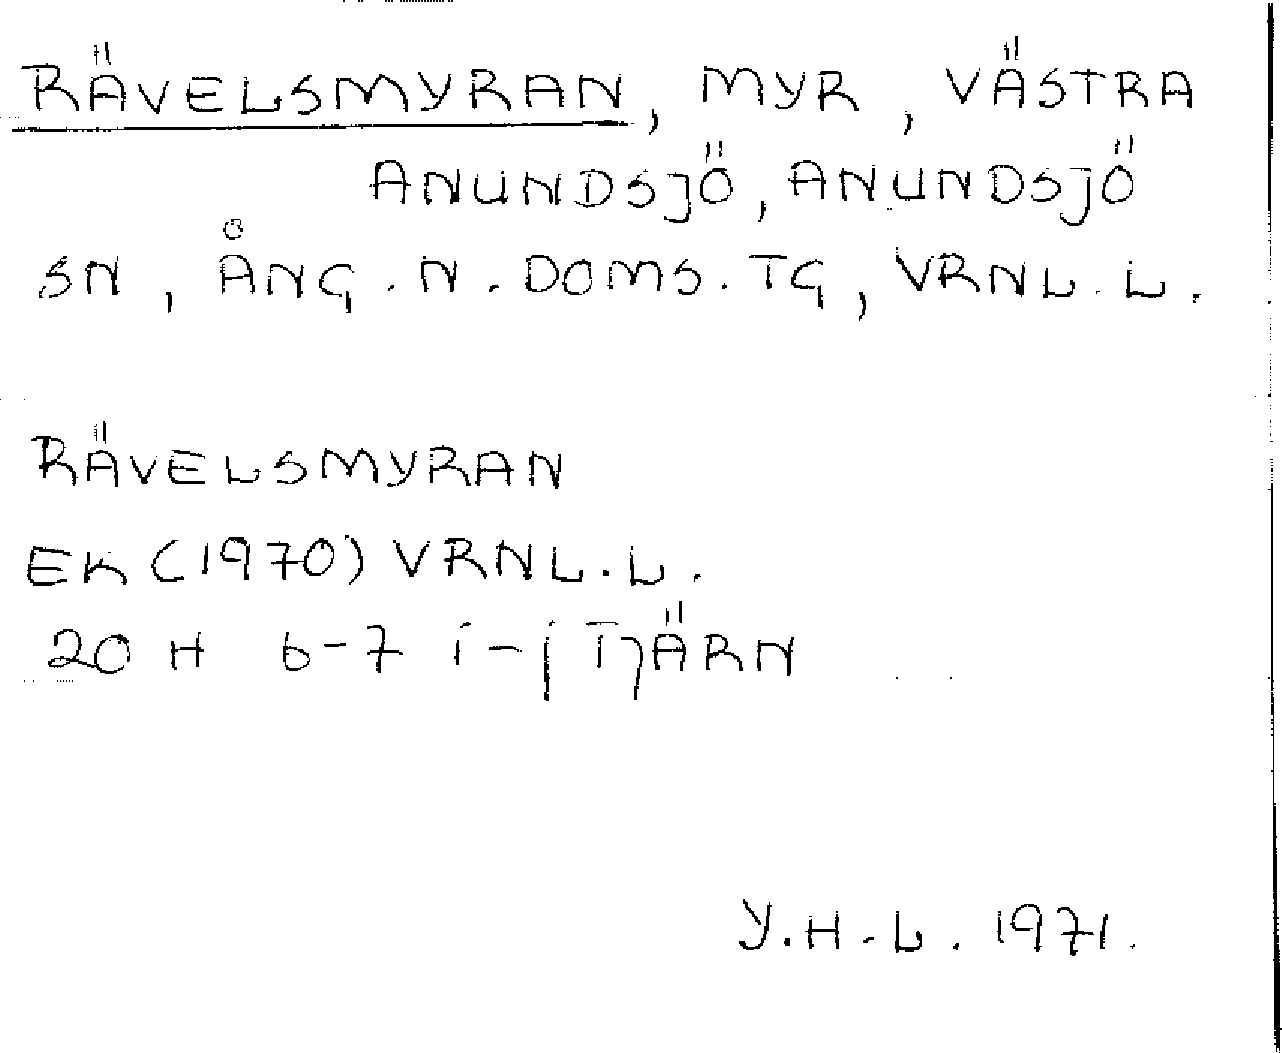 RÄVELSMYRAN, MYR, VÄSTRA
ANUNDSJÖ, ANUNDSJÖ
SN, ÅNG. N. DOMS. TG, VRNL. L.
RÄVELSMYRAN
EK (1970) VRNL. L.
20 H 6-7 i-j TJÄRN
Y.H.L. 1971.